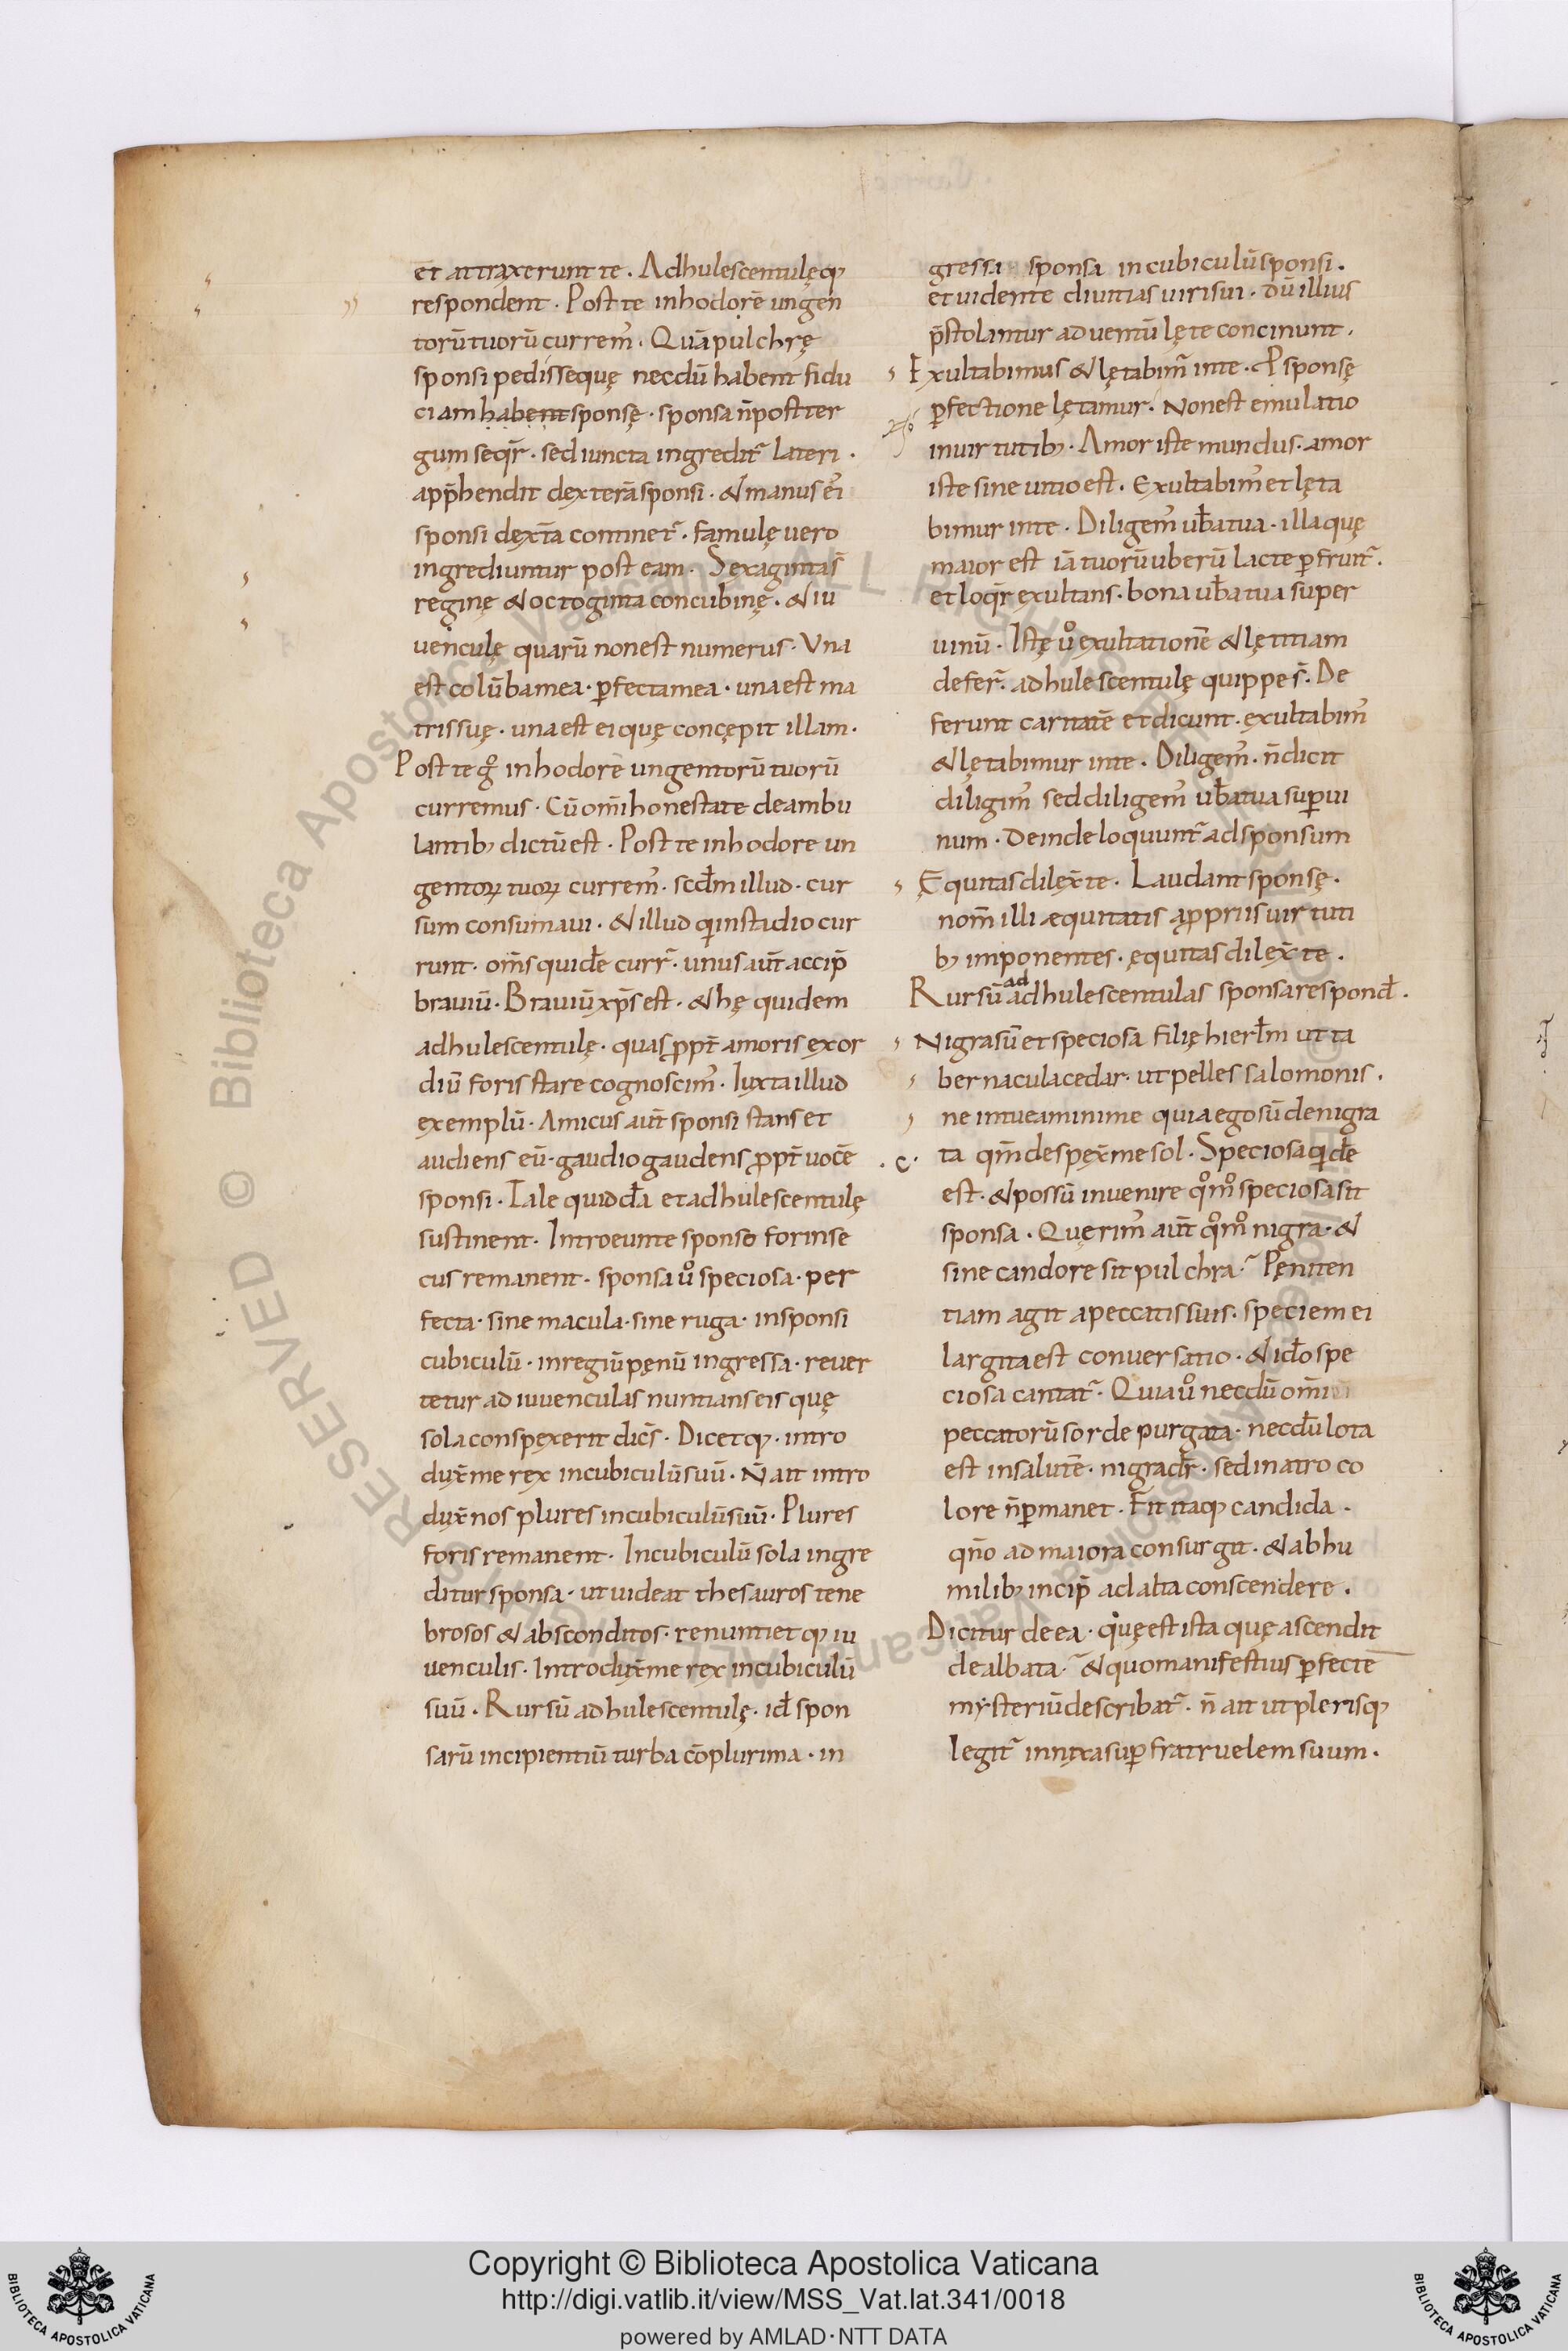 et attraxerunt te. Adhulescentulęq;
respondent. Post te inhodorē ungen
torū tuorū currem᾽. Quā pulchrę
sponsi pedissequę necdū habent fidu
ciam habent sponsę. sponsa n̄ post ter
gum seqr̄. sed iuncta ingredit᾽ lateri.
app̄hendit dexterā sponsi. & manus ei᾽
sponsi dext̄a continet᾽. famulę uero
ingrediuntur post eam. Sexaginta s̄
reginę & octoginta concubinę. & iu
uenculę quarū non est numerus. Una
est colūba mea. ꝑfecta mea. una est ma
tris suę. una est ei quę concępit illam.
Post te gͦ inhodore ungentorū tuorū
curremus. Cū om̄i honestate deambu
lantib; dictū est. Post te inhodore un
gentoꝝ tuoꝝ currem᾽. scd̄m illud. cur
sum consumaui. & illud qui in stadio cur
runt. om̄s quidē curr᾽. unus aut̄ accip̄
brauiū. Brauiū xp̄s est. & hę quidem
adhulescentulę. quas ꝓpt̄ amoris exor
diū foris stare cognoscim᾽. Iuxta illud
exemplū. Amicus aut̄ sponsi stans et
audiens eū. gaudio gaudens ꝓpt̄ uocē
sponsi. Tale quidd̄a et adhulescentulę
sustinent. Introeunte sponso forinse
cus remanent. sponsa uͦ speciosa. per
fecta. sine macula. sine ruga. in sponsi
cubiculū. in regiū pęnū ingressa. reuer
tetur ad iuuenculas nuntians eis quę
sola conspexerit dic̄s. Dicetq;. intro
dux̄ me rex in cubiculū suū. N̄ ait intro
dux̄ nos plures in cubiculū suū. Plures
foris remanent. In cubiculū sola ingre
ditur sponsa. ut uideat thesauros tene
brosos & absconditos. renuntietq; iu
uenculis. Introdux̄ me rex in cubiculū
suū. Rursū adhulescentulę. id̄ spon
sarū incipientiū turba cōplurima. in
gressa sponsa in cubiculū sponsi.
et uidente diuitias uiri sui. dū illius
p̄stolantur aduentū lęte concinunt.
Exultabimus & lętabim᾽ in te. P sponsę
ꝑfectione lętamur. Non est emulatio
in uirtutib;. Amor iste mundus. amor
iste sine uitio est. Exultabim᾽ et lęta
bimur in te. Diligem᾽ ub̄a tua. illa quę
maior est iā tuorū uberū lacte ꝑfruit᾽.
et loqr̄ exultans. bona ub̄a tua super
uinū. Istę uͦ exultationē & lętitiam
defer᾽. adhulescentulę quippe s̄. De
ferunt caritatē et dicunt. exultabim᾽
& lętabimur in te. Diligem᾽. n̄ dicit
diligim᾽ sed diligem᾽ ub̄a tua suꝑ ui
num. Deinde loquunt᾽ ad sponsum
Ęquitas dilex̄ te. Laudant sponsę.
nom̄ illi æquitatis a ꝓpriis uirtuti
b; imponentes. ęquitas dilex̄ te.
ad
Rursū adhulescentulas sponsa respond̄.
Nigra sū et speciosa filię hierl̄m ut ta
bernacula cedar. ut pelles salomonis.
ne intueamini me quia ego sū denigra
.c. ta qm̄ despex̄ me sol. Speciosa qidē
est. & possū inuenire qͦmͦ speciosa sit
sponsa. Quęrim᾽ aut̄ qͦmͦ nigra. &
sine candore sit pulchra. Pęniten
tiam agit a peccatis suis. speciem ei
largita est conuersatio. & id̄o spe
ciosa cantat᾽. Quia uͦ necdū om̄iū
peccatorū sorde purgata. necdū lota
est in salutē. nigra dr̄. sed in atro co
lore n̄ ꝑmanet. Fit itaq; candida.
qn̄o ad maiora consurgit. & ab hu
milib; incip̄ ad alta conscendere.
Dicitur de ea. quę est ista quę ascendit
dealbata. & quo manifestius ꝑfectę
mysteriū describat᾽. n̄ ait ut plerisq;
legit᾽ innixa suꝑ fratruelem suum.
RESERVED © Biblioteca Apostolica Vaticana ALL RIGHTS RESERVED
Copyright © Biblioteca Apostolica Vaticana
http://digi.vatlib.it/view/MSS_Vat.lat.341/0018
powered by AMLAD·NTT DATA
BIBLIOTECA APOSTOLICA VATICANA
BIBLIOTECA APOSTOLICA VATICANA